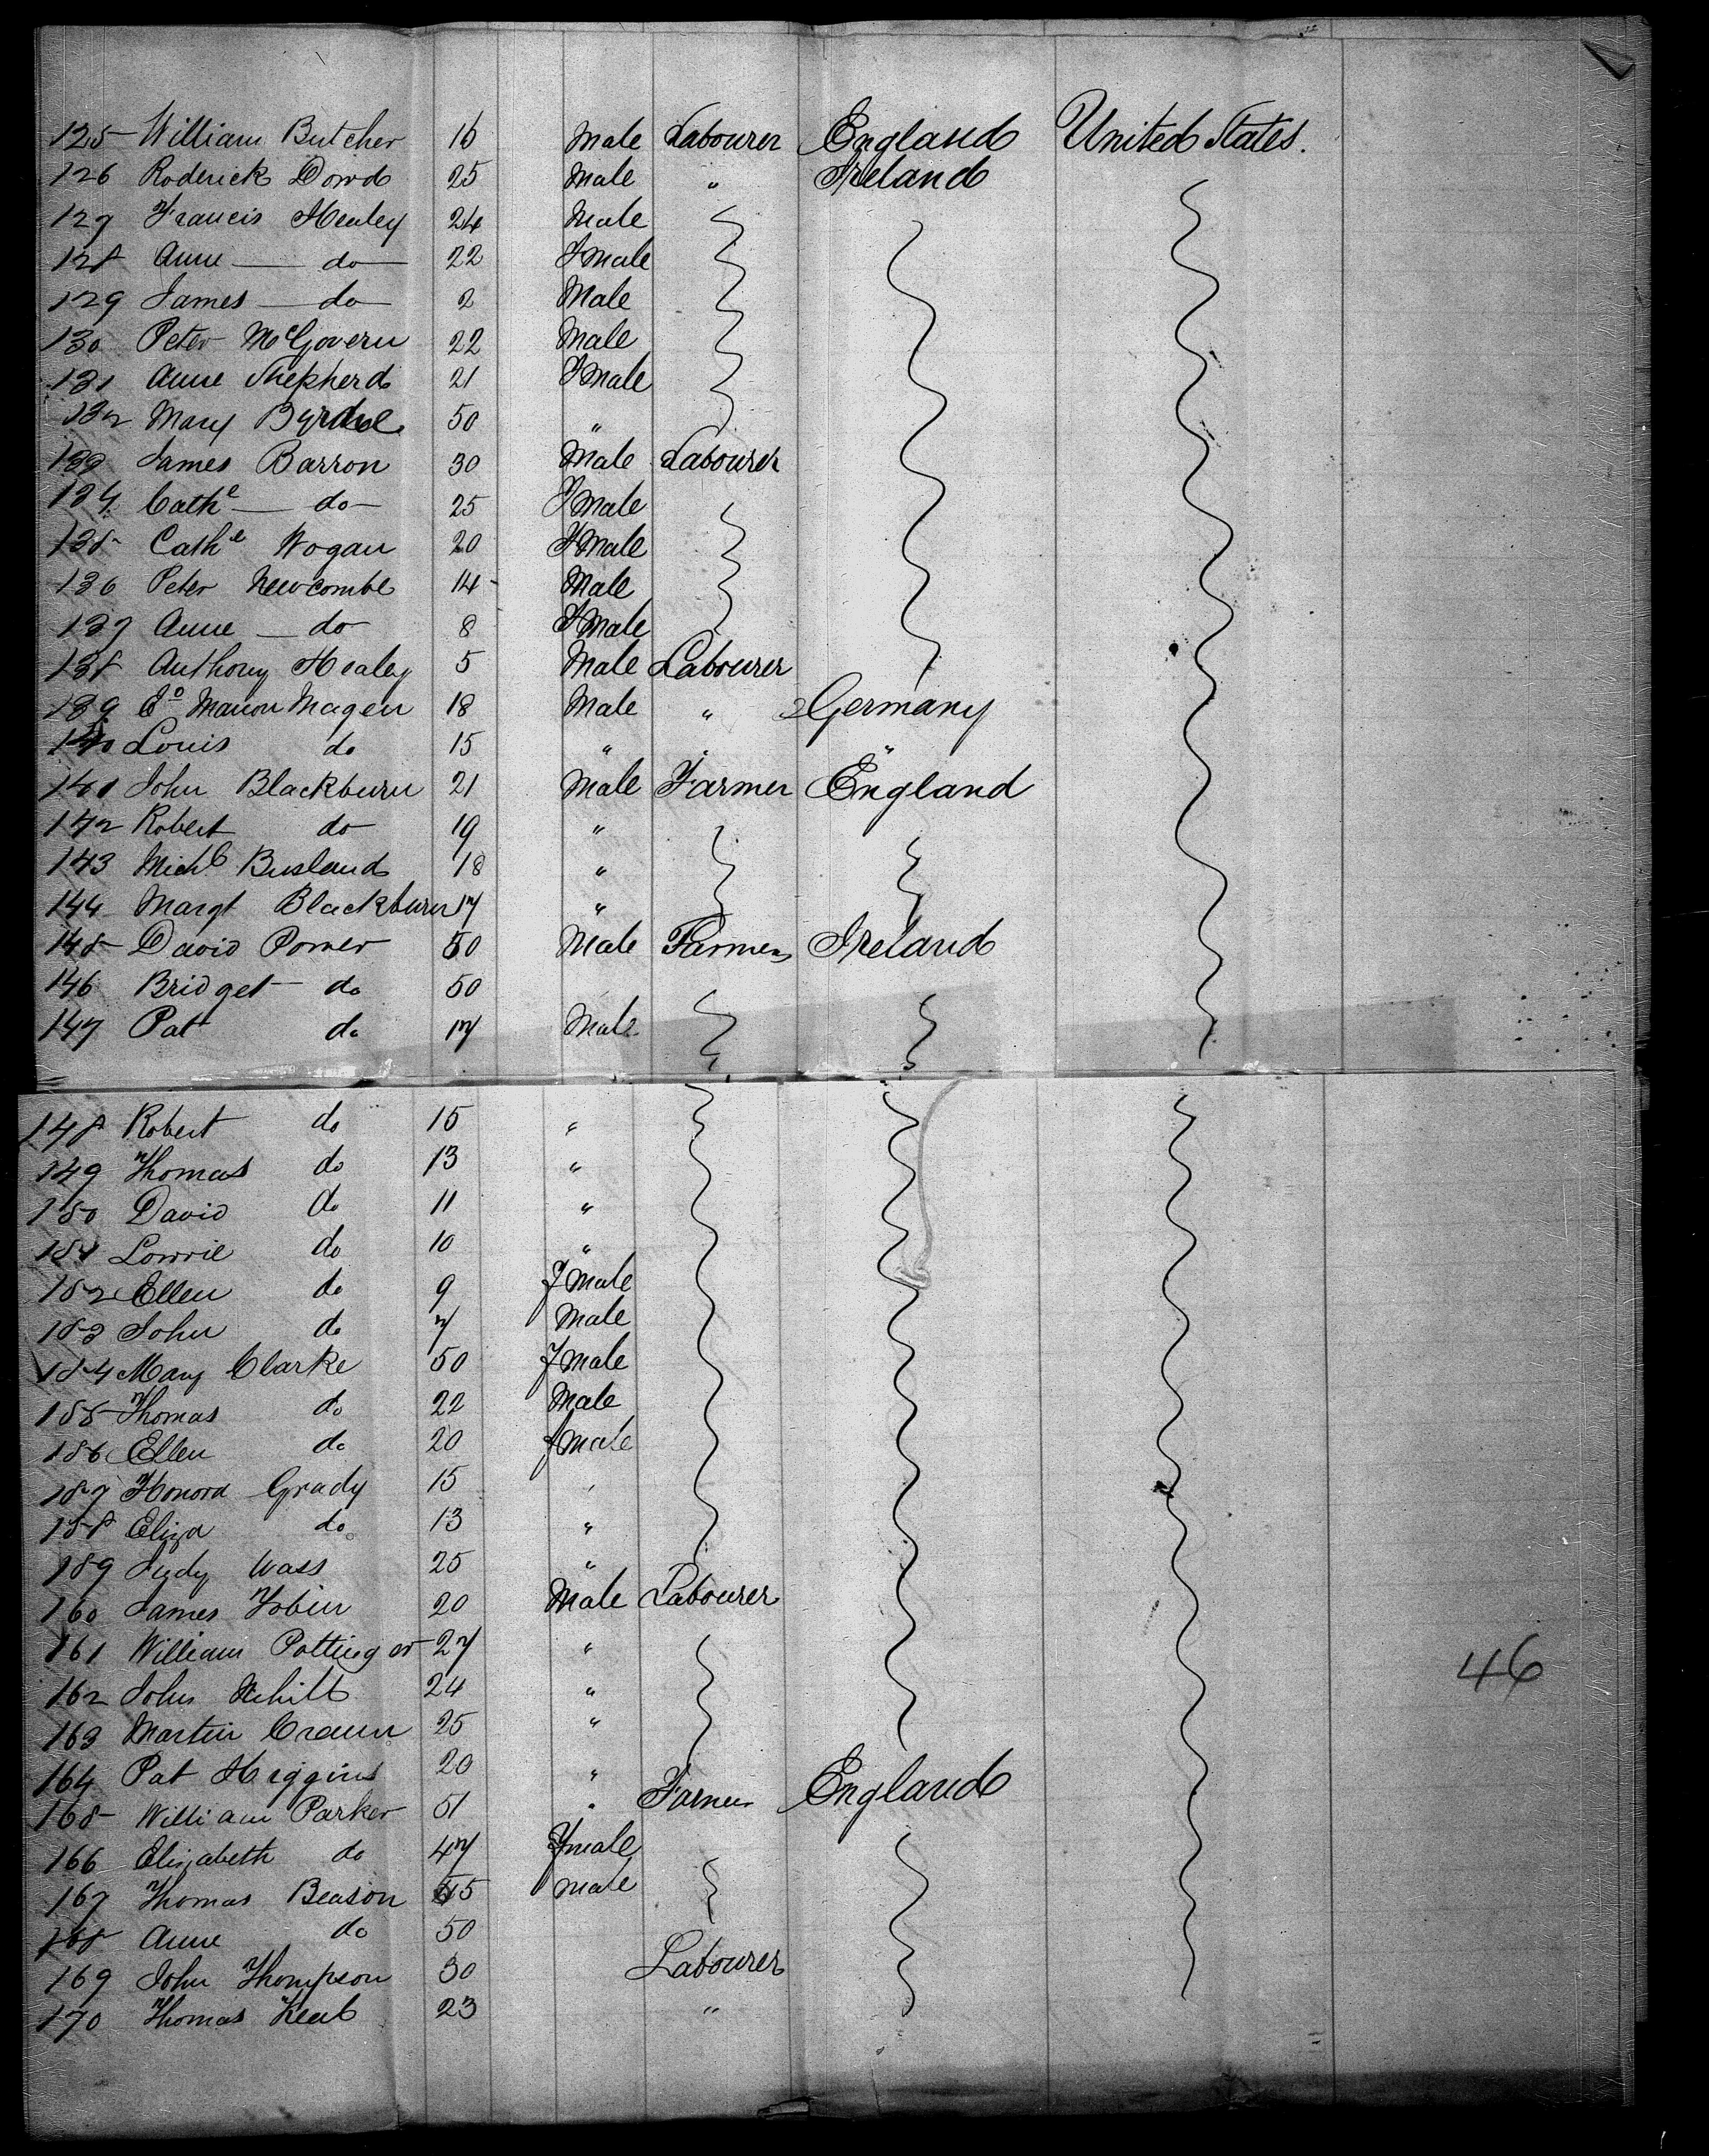 125 William Butcher 16 Male Labourer England United States.
126 Roderick Dowd 25 Male " Ireland
127 Francis Healey 24 Male
128 Anne — do — 22 Fmale
129 James — do — 2 Male
130 Peter McGovern 22 Male
131 Anne Shepherd 21 Fmale
132 Mary 50 "
133 James Barron 30 Male Labourer
134 Cathe — do — 25 Fmale
135 Cathe Wogan 20 Fmale
136 Peter Newcombe 14 Male
137 Anne — do 8 Fmale
138 Anthony Healey 5 Male Labourer
139 Magen 18 Male " Germany
140 Louis do 15 " " "
141 John Blackburn 21 Male Farmer England
142 Robert do 19 "
143 Michl Busland 18 "
144 Margt Blackburn 17 "
145 David Power 50 Male Farmer Ireland
146 Bridget do 50
147 Pat do 17 Male
148 Robert do 15 "
149 Thomas do 13 "
150 David do 11 "
151 Lowrie do 10 "
152 Ellen do 9 Fmale
153 John do 7 Male
154 Mary Clarke 50 Fmale
155 Thomas do 22 Male
156 Ellen do 20 fmale
157 Honora Grady 15 "
158 Eliza do 13 "
159 Judy Wass 25 "
160 James Tobin 20 Male Labourer
161 William Pottinger 27 "
162 John 24 "
163 Martin 25 "
164 Pat Higgins 20 "
165 William Parker 51 " Farmer England
166 Elizabeth do 47 Fmale
167 Thomas Beason 45 male
168 Anne do 50
169 John Thompson 30 Labourer
170 Thomas 23 "
46